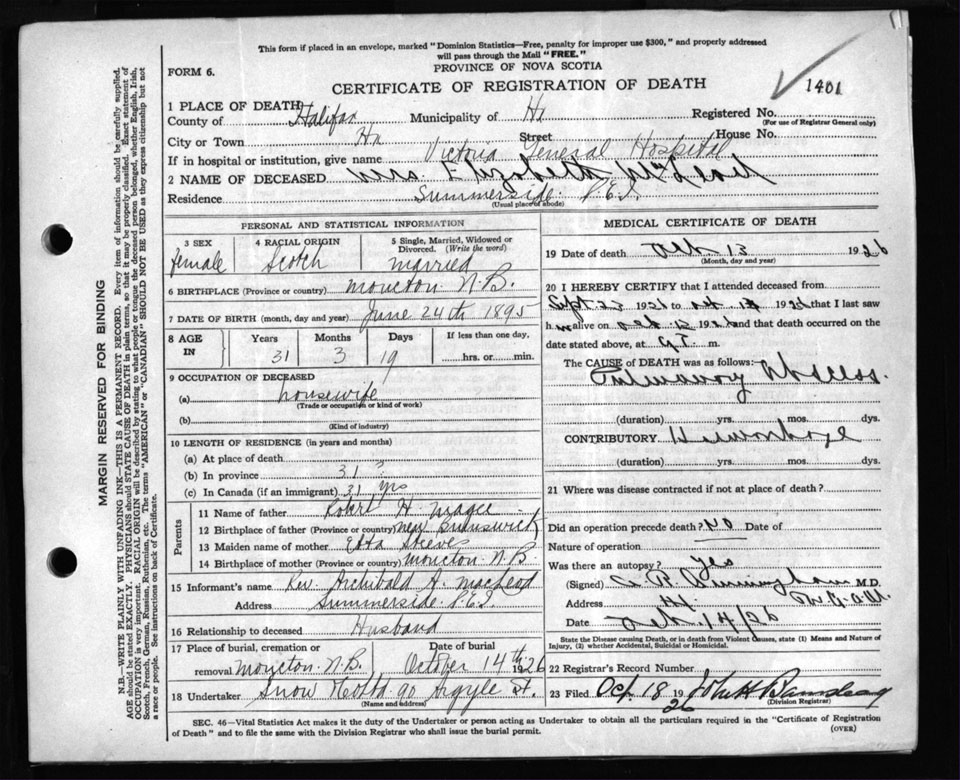 This form if placed in an envelope, marked "Dominion Statistics—Free, penalty for improper use $300," and properly addressed
will pass through the Mail "FREE."
PROVINCE OF NOVA SCOTIA
FORM 6.
CERTIFICATE OF REGISTRATION OF DEATH
1401
1 PLACE OF DEATH
County of Halifax Municipality of Hx Registered No.
(For use of Registrar General only)
City or Town Hx Street House No.
If in hospital or institution, give name Victoria General Hospital
2 NAME OF DECEASED Mrs. Elizabeth McLeod
Residence Summerside P.E.I.
(Usual place of abode)
PERSONAL AND STATISTICAL INFORMATION
3 SEX 4 RACIAL ORIGIN 5 Single, Married, Widowed or Divorced. (Write the word)
female Scotch married
6 BIRTHPLACE (Province or country) Moncton N.B.
7 DATE OF BIRTH (month, day and year) June 24th 1895
8 AGE IN Years Months Days If less than one day,
31 3 19 hrs. or min.
9 OCCUPATION OF DECEASED
(a) housewife
(Trade or occupation or kind of work)
(b)
(Kind of industry)
10 LENGTH OF RESIDENCE (in years and months)
(a) At place of death
(b) In province 31 "
(c) In Canada (if an immigrant) 31 yrs
Parents
11 Name of father Robert H. Magee
12 Birthplace of father (Province or country) New Brunswick
13 Maiden name of mother Etta Steeves
14 Birthplace of mother (Province or country) Moncton N.B.
15 Informant's name Rev. Archibald H. MacLeod
Address Summerside P.E.I.
16 Relationship to deceased Husband
17 Place of burial, cremation or removal Moncton N.B. Date of burial October 14th 1926
18 Undertaker Snow 90 Argyle St.
(Name and address)
MEDICAL CERTIFICATE OF DEATH
19 Date of death Oct. 13 1926
(Month, day and year)
20 I HEREBY CERTIFY that I attended deceased from
Sept. 23 1926 to Oct 1926 that I last saw
h alive on Oct 12 1926 and that death occurred on the
date stated above, at m.
The CAUSE of DEATH was as follows:
Pulmonary Abscess.
(duration) yrs. mos. dys.
CONTRIBUTORY Hemorrhage
(duration) yrs. mos. dys.
21 Where was disease contracted if not at place of death?
Did an operation precede death? No Date of
Nature of operation
Was there an autopsy? yes
(Signed) M.D.
Address
Date Oct. 14/26
State the Disease causing Death, or in death from Violent Causes, state (1) Means and Nature of
Injury, (2) whether Accidental, Suicidal or Homicidal.
22 Registrar's Record Number
23 Filed Oct 18 1926
(Division Registrar)
SEC. 46—Vital Statistics Act makes it the duty of the Undertaker or person acting as Undertaker to obtain all the particulars required in the "Certificate of Registration
of Death" and to file the same with the Division Registrar who shall issue the burial permit.
(OVER)
MARGIN RESERVED FOR BINDING
N.B.—WRITE PLAINLY WITH UNFADING INK—THIS IS A PERMANENT RECORD. Every item of information should be carefully supplied.
AGE should be stated EXACTLY. PHYSICIANS should STATE CAUSE OF DEATH in plain terms, so that it may be properly classified. Exact statement of
OCCUPATION is very important. RACIAL ORIGIN will be described by stating to what people or tongue the deceased person belonged, whether English, Irish,
Scotch, French, German, Russian, Ruthenian, etc. The terms "AMERICAN" or "CANADIAN" SHOULD NOT BE USED as they express citizenship but not
a race or people. See instructions on back of Certificate.